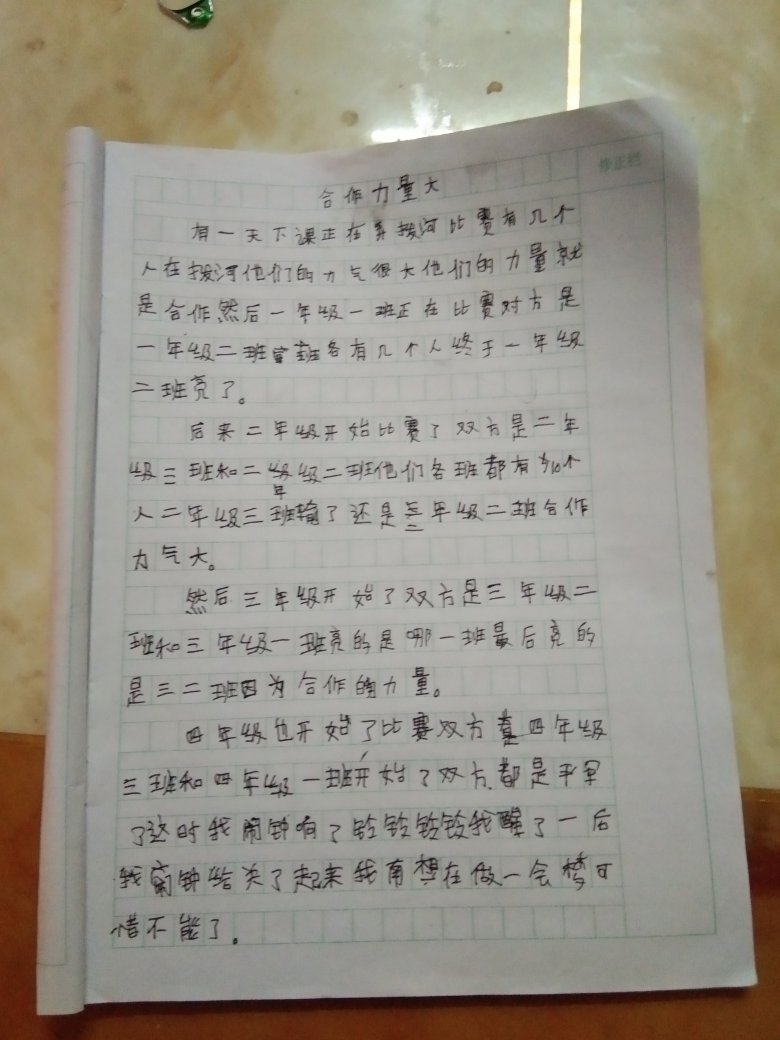 修正栏
合作力量大
有一天下课正在弄拨河比赛有几个
人在拨河他们的力气很大他们的力量就
是合作然后一年级一班正在比赛对方是
一年级二班班各有几个人终于一年级
二班亮了。
后来二年级开始比赛了双方是二年
级三班和二年级二班他们各班都有10个
人二年级三班输了还是二年级二班合作
力气大。
然后三年级开始了双方是三年级二
班和三年级一班亮的是哪一班最后亮的
是三二班因为合作的力量。
四年级也开始了比赛双方是四年级
三班和四年级一班开始了双方都是平军
了这时我闹钟响了铃铃铃铃我醒了一后
我闹钟给关了起来我再想在做一会梦可
惜不能了。